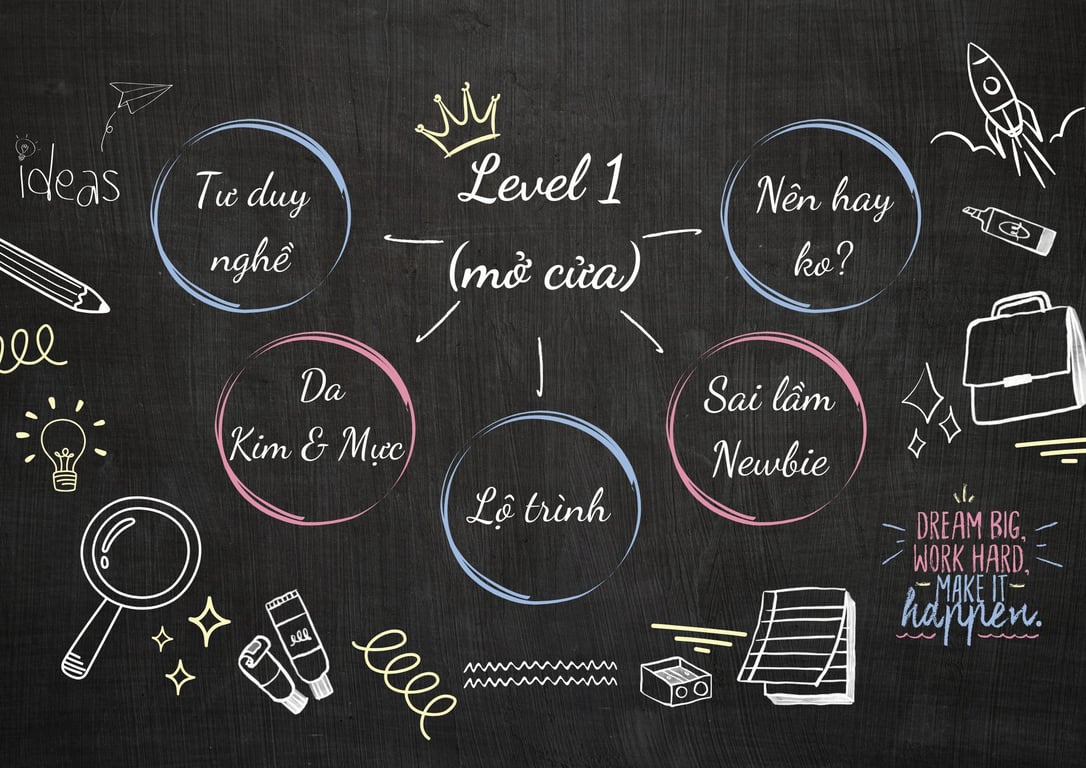 ideas
Level 1
(mở cửa)
Tư duy
nghề
Da
Kim & Mực
Lộ trình
Sai lầm
Newbie
Nên hay
ko?
DREAM BIG,
WORK HARD,
MAKE IT
happen.